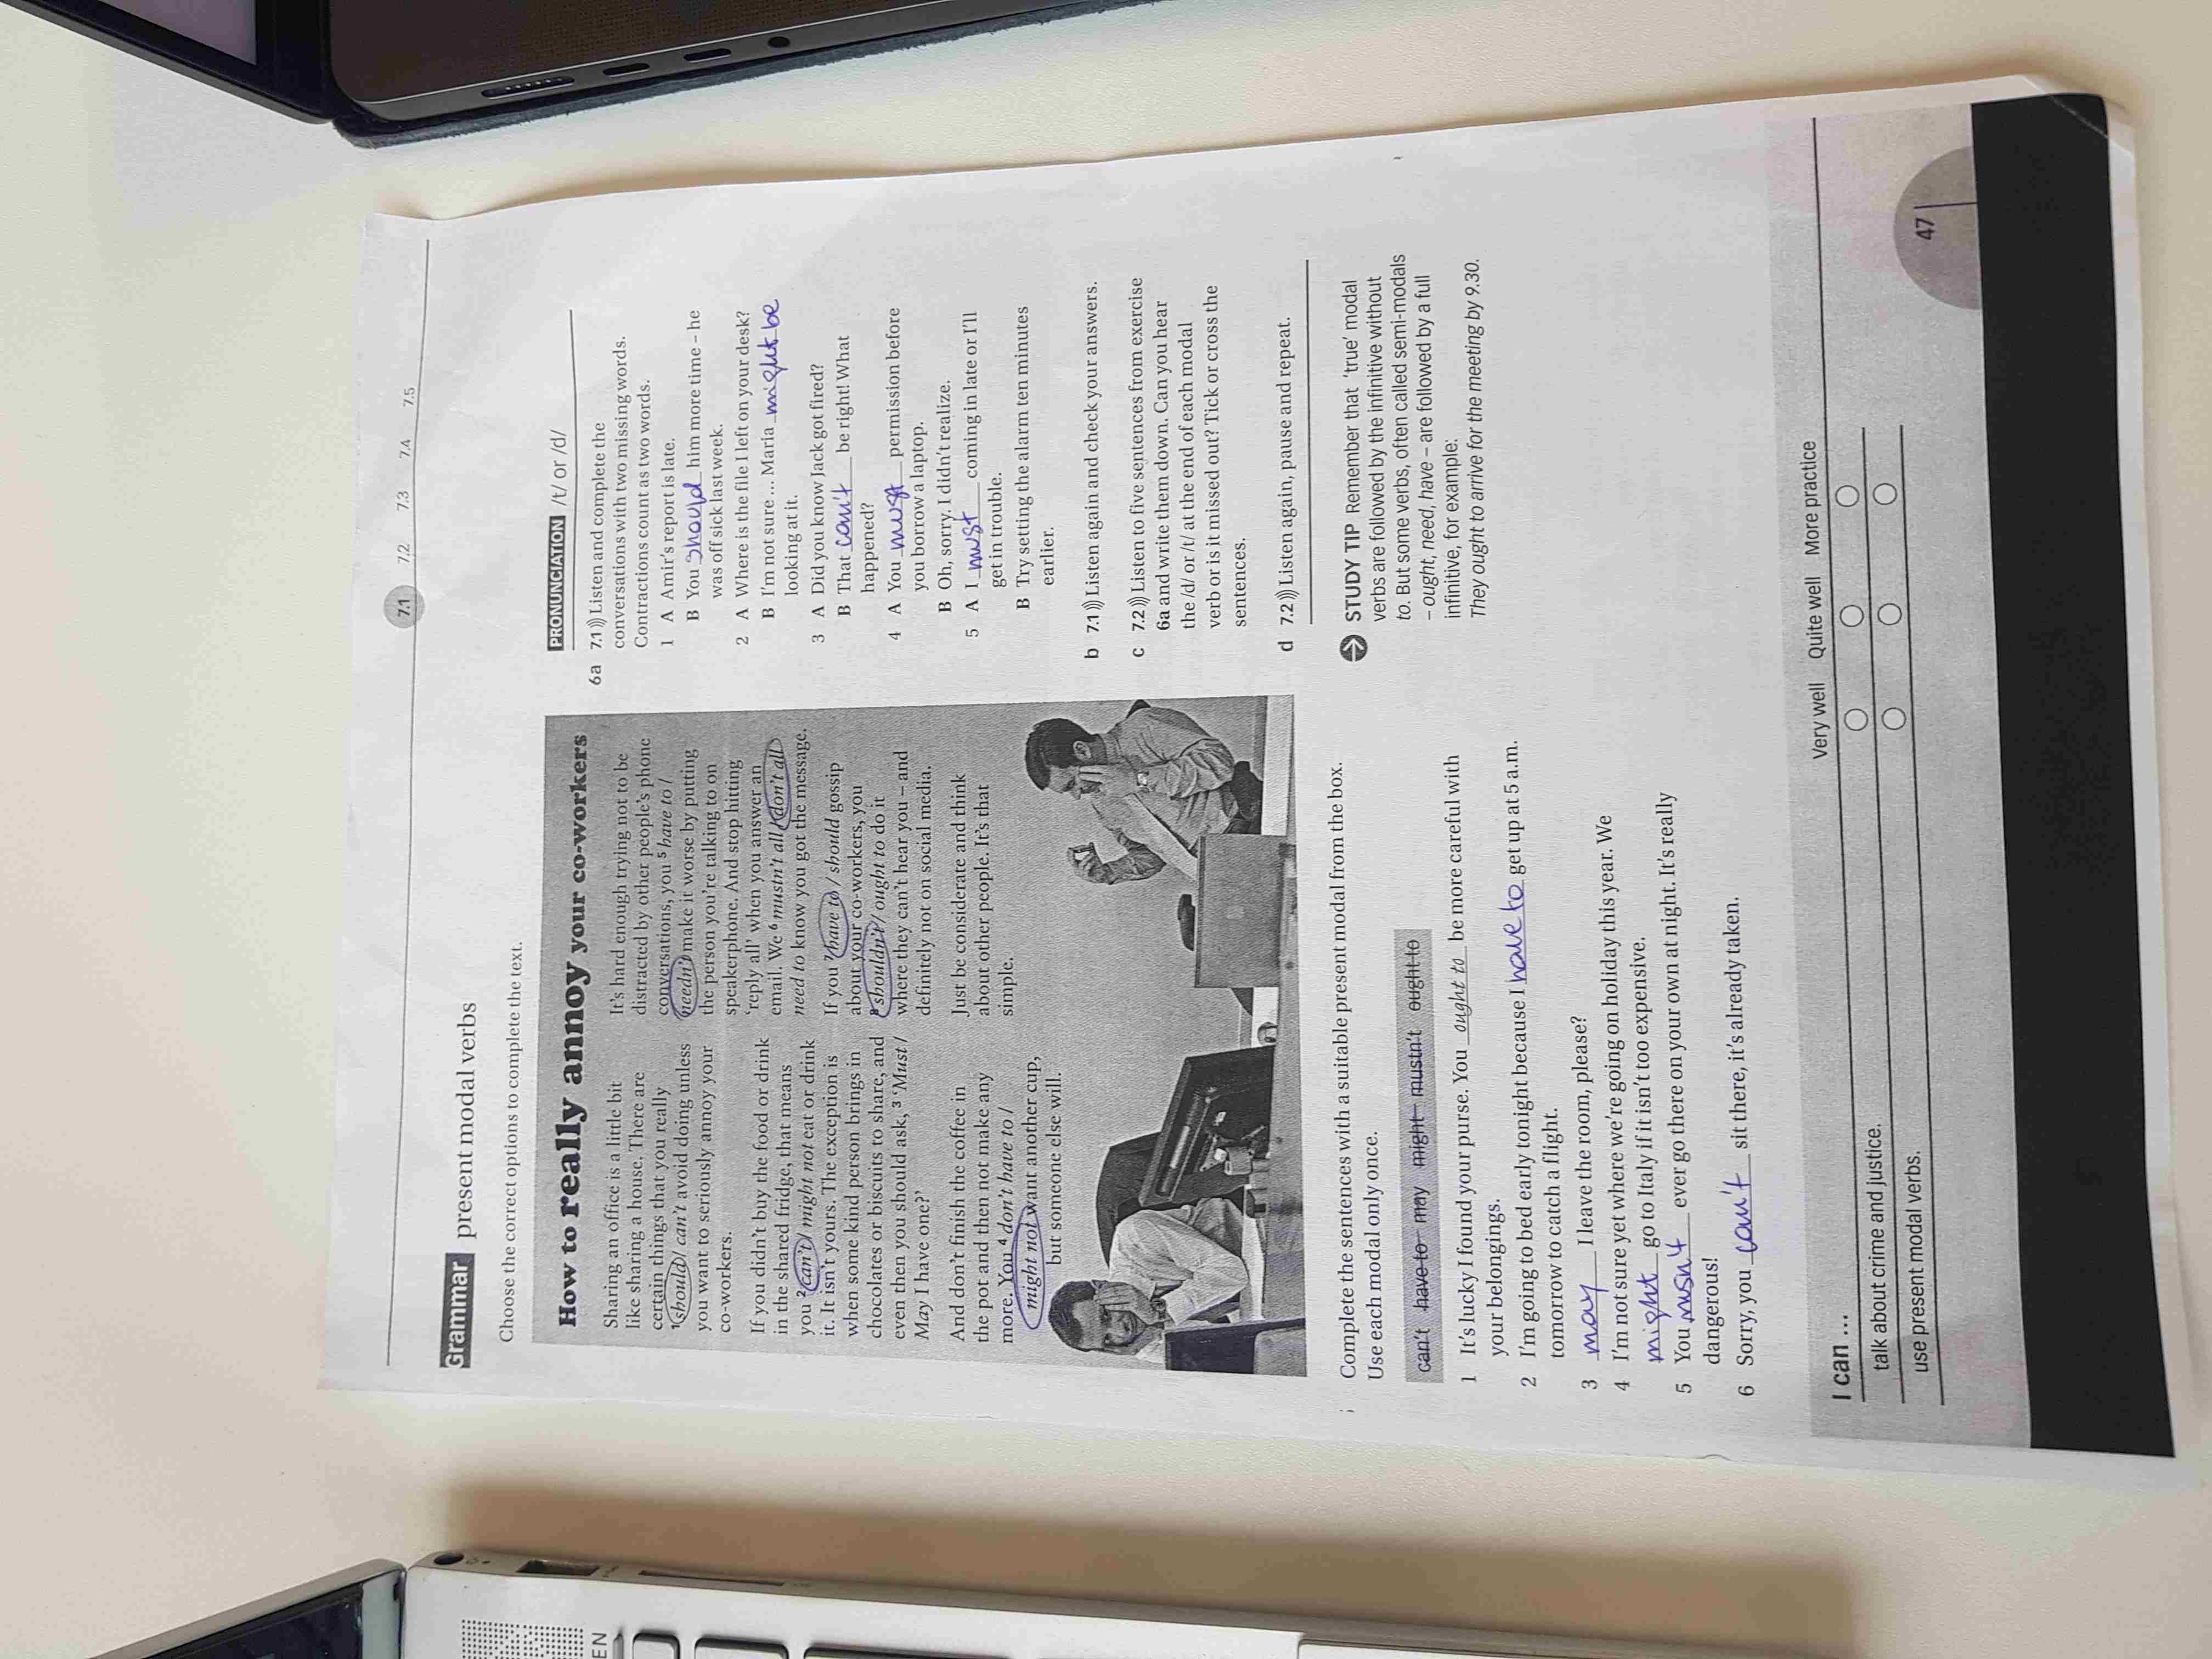 7.1 7.2 7.3 7.4 7.5
Grammar present modal verbs
Choose the correct options to complete the text.
How to really annoy your co-workers
Sharing an office is a little bit
like sharing a house. There are
certain things that you really
1 should / can't avoid doing unless
you want to seriously annoy your
co-workers.
If you didn't buy the food or drink
in the shared fridge, that means
you 2 can't / might not eat or drink
it. It isn't yours. The exception is
when some kind person brings in
chocolates or biscuits to share, and
even then you should ask, 3 'Must /
May I have one?'
And don't finish the coffee in
the pot and then not make any
more. You 4 don't have to /
might not want another cup,
but someone else will.
It's hard enough trying not to be
distracted by other people's phone
conversations, you 5 have to /
needn't make it worse by putting
the person you're talking to on
speakerphone. And stop hitting
'reply all' when you answer an
email. We 6 mustn't all / don't all
need to know you got the message.
If you 7 have to / should gossip
about your co-workers, you
8 shouldn't / ought to do it
where they can't hear you – and
definitely not on social media.
Just be considerate and think
about other people. It's that
simple.
Complete the sentences with a suitable present modal from the box.
Use each modal only once.
can't have to may might mustn't ought to
1 It's lucky I found your purse. You ought to be more careful with
your belongings.
2 I'm going to bed early tonight because I have to get up at 5 a.m.
tomorrow to catch a flight.
3 may I leave the room, please?
4 I'm not sure yet where we're going on holiday this year. We
might go to Italy if it isn't too expensive.
5 You ever go there on your own at night. It's really
dangerous!
6 Sorry, you can't sit there, it's already taken.
PRONUNCIATION /t/ or /d/
6a 7.1 Listen and complete the
conversations with two missing words.
Contractions count as two words.
1 A Amir's report is late.
B You should him more time – he
was off sick last week.
2 A Where is the file I left on your desk?
B I'm not sure ... Maria might be
looking at it.
3 A Did you know Jack got fired?
B That can't be right! What
happened?
4 A You must permission before
you borrow a laptop.
B Oh, sorry. I didn't realize.
5 A I must coming in late or I'll
get in trouble.
B Try setting the alarm ten minutes
earlier.
b 7.1 Listen again and check your answers.
c 7.2 Listen to five sentences from exercise
6a and write them down. Can you hear
the /d/ or /t/ at the end of each modal
verb or is it missed out? Tick or cross the
sentences.
d 7.2 Listen again, pause and repeat.
STUDY TIP Remember that 'true' modal
verbs are followed by the infinitive without
to. But some verbs, often called semi-modals
– ought, need, have – are followed by a full
infinitive, for example:
They ought to arrive for the meeting by 9.30.
I can ...
Very well Quite well More practice
talk about crime and justice.
use present modal verbs.
47
EN